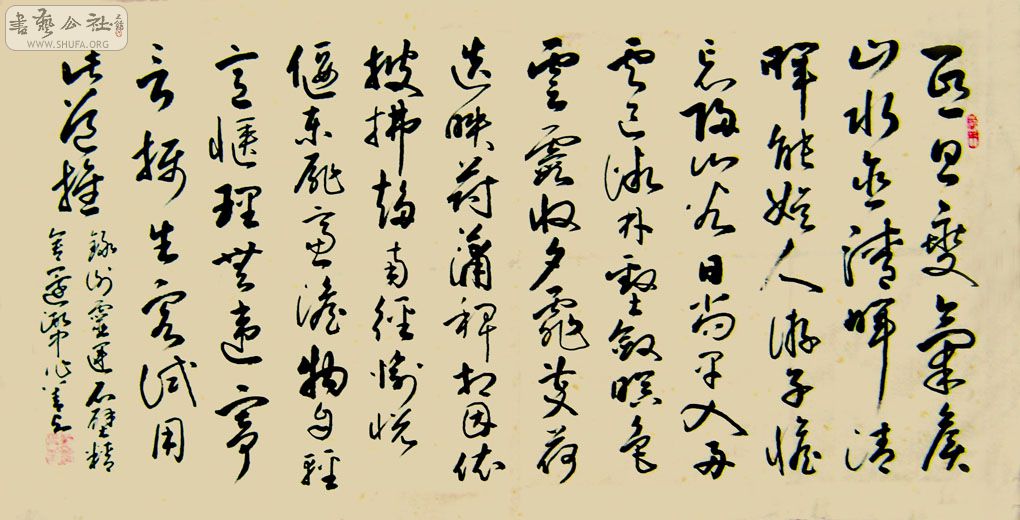 書藝公社
WWW.SHUFA.ORG
昏旦變氣候
山水含清暉清
暉能娛人游子憺
忘歸出谷日尚早入舟
已微林壑斂暝色
雲霞收夕霏芰荷
迭映蔚蒲稗相因依
披拂趨南徑愉悅
偃東扉慮澹物自輕
意愜理無違寄
言攝生客試用
此道推
錄謝靈運石壁精
舍還湖中作